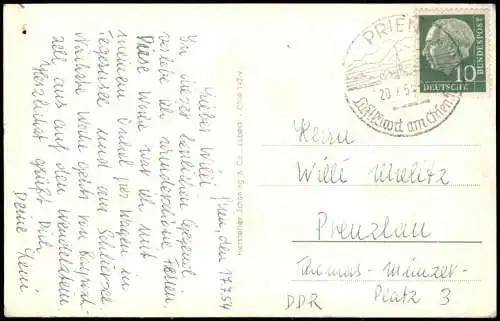 Prien, den 17.7.54
Lieber Willi!
In dieser herrlichen Gegend
verlebe ich wunderschöne Ferien.
Diese Woche war ich mit
meinem Onkel per Wagen in
Tegernsee und am Schliersee.
Nächste Woche geht's von Bayrisch-
zell aus auf den Wendelstein.
Herzlichst grüßt Dich
Deine
PRIEN
20.7.54
Luftkurort am Chiemsee
10
DEUTSCHE
BUNDESPOST
Herrn
Willi
Prenzlau
Thomas-Münzer-
Platz 3
DDR